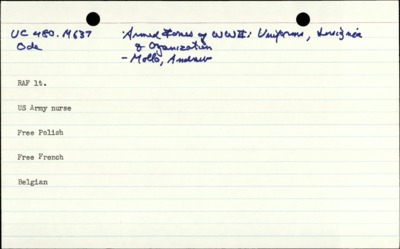 UC 480.M637
Oda
Armed Forces of WWII: Uniforms, Insignia
& Organization
- Mollo, Andrew
RAF lt.
US Army nurse
Free Polish
Free French
Belgian